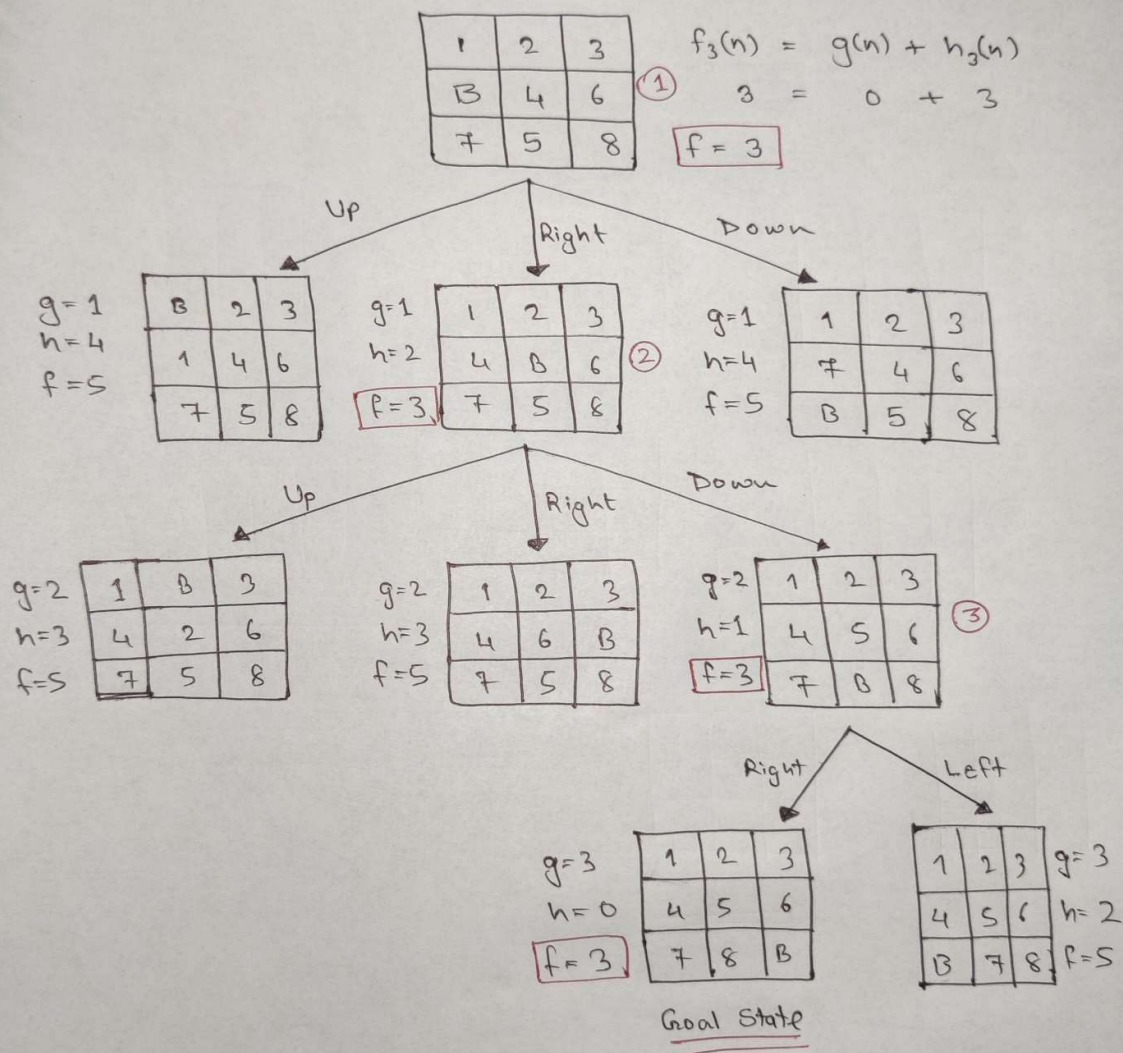 1 2 3
B 4 6
7 5 8
1
f3(n) = g(n) + h3(n)
3 = 0 + 3
f = 3
Up
Right
Down
g=1
h=4
f=5
B 2 3
1 4 6
7 5 8
g=1
h=2
f=3
1 2 3
4 B 6
7 5 8
2
g=1
h=4
f=5
1 2 3
7 4 6
B 5 8
Up
Right
Down
g=2
h=3
f=5
1 B 3
4 2 6
7 5 8
g=2
h=3
f=5
1 2 3
4 6 B
7 5 8
g=2
h=1
f=3
1 2 3
4 5 6
7 B 8
3
Right
Left
g=3
h=0
f=3
1 2 3
4 5 6
7 8 B
Goal State
1 2 3
4 5 6
B 7 8
g=3
h=2
f=5